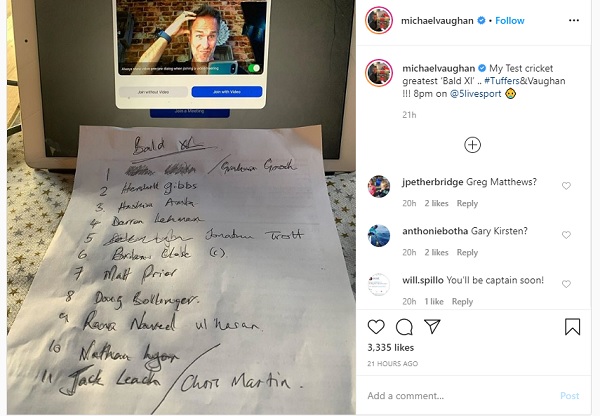 Join without Video
Join with Video
Join a Meeting
Bald XI
1 / Graham Gooch
2 Herschelle Gibbs
3. Hashim Amla
4 Darren Lehman
5 Jonathan Trott
6 Brian Close (c)
7 Matt Prior
8 Doug Bollinger.
9 Rana Naved ul hasan.
10 Nathan Lyon
11 Jack Leach / Chris Martin.
michaelvaughan • Follow
michaelvaughan My Test cricket
greatest 'Bald XI' .. #Tuffers&Vaughan
!!! 8pm on @5livesport
21h
jpetherbridge Greg Matthews?
20h 2 likes Reply
anthoniebotha Gary Kirsten?
20h 2 likes Reply
will.spillo You'll be captain soon!
20h 1 like Reply
3,335 likes
21 HOURS AGO
Add a comment... Post